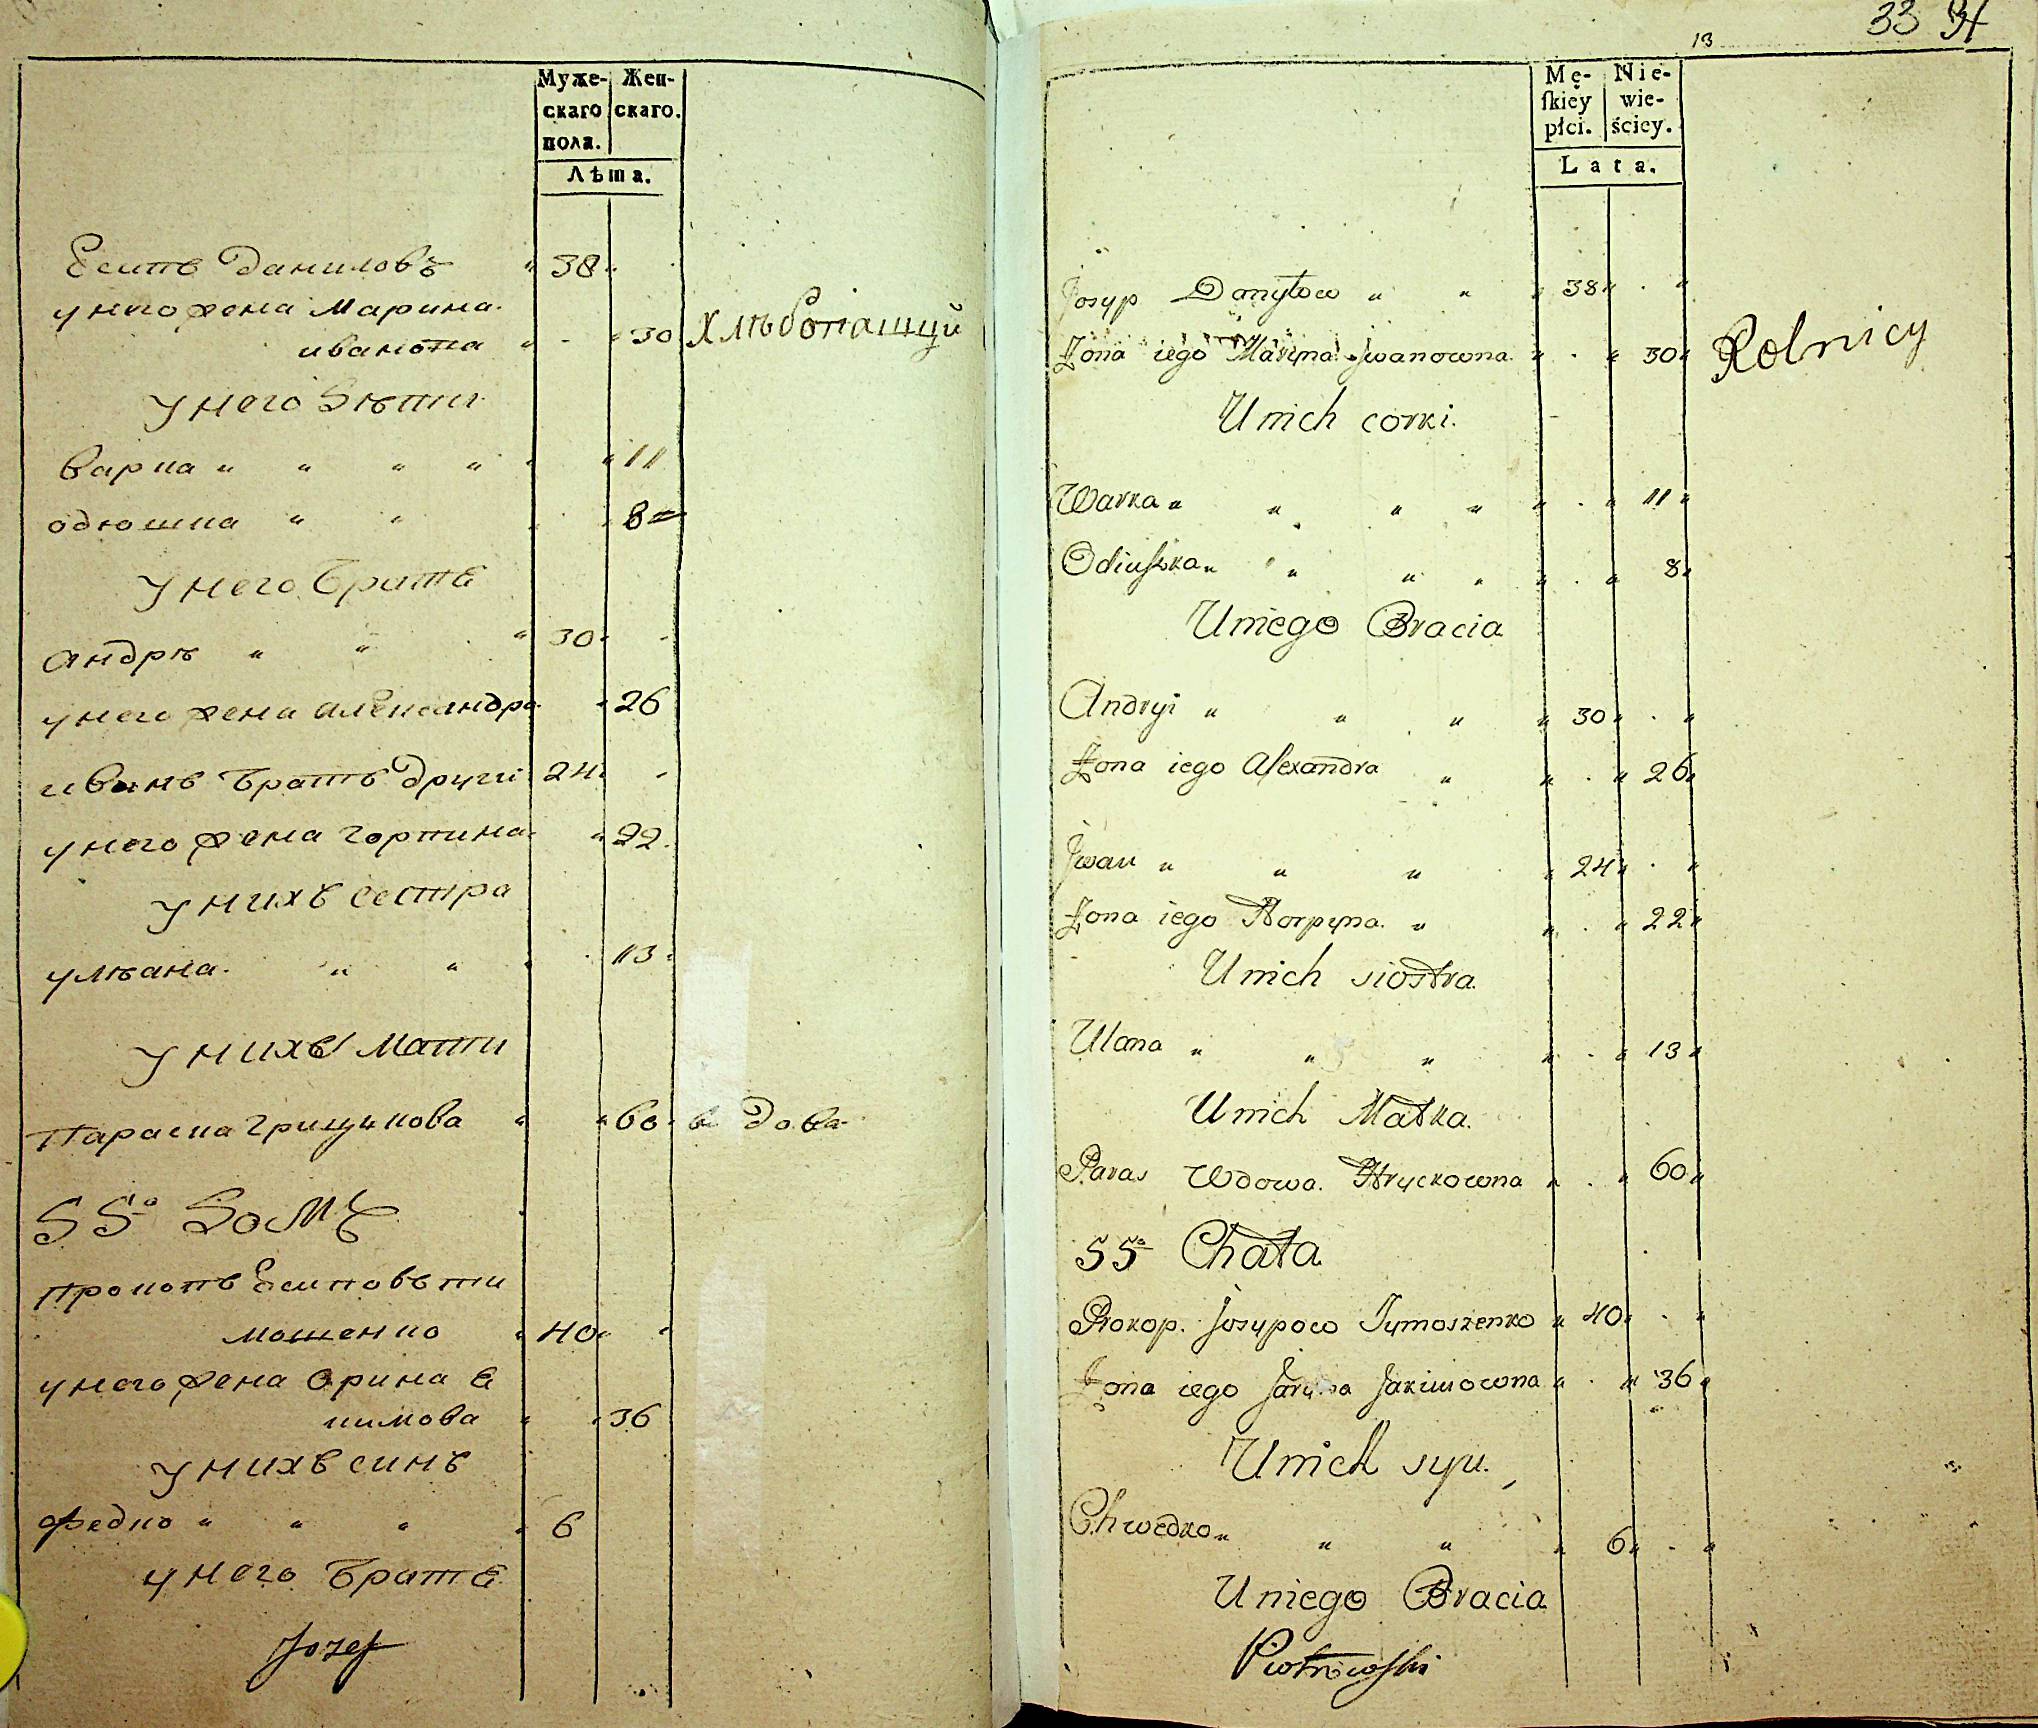 Муже- Жен-
скаго скаго.
пола.
Лѣта.
Есипъ Даниловъ " 38 "
у него жена Марина
ивановна " - " 30 Хлѣбопашцы
у него дѣти
Варка " " " " " " 11
одюшка " " 8
у него братЕ
андрѣ " " " 30 "
у него жена алЕксандра " 26
иванъ братъ други 24
у него жена горпина " 22
у нихъ сестра
улѣана " " " 13
у нихъ мати
Параска грицкова " " 60 вдова
55о Домъ
Прокопъ Есиповъ ти
мошенко " 40 "
у него жена Орина Е
кимова " " 36
у нихъ синъ
Федко " " " " 6
у него братЕ
Jozef
33 34
13
Mę- Nie-
ſkiéy wie-
płci. ściey.
Lata.
Josyp Danyłow " " " 38 " . "
Żona iego Maryna Jwanowna " . " 30 " Rolnicy
U nich corki.
Warka " " " " " . " 11 "
Odiuſzka " " " " " . " 8 "
U niego Bracia
Andryi " " " " 30 " . "
Żona iego Alexandra " " . " 26 "
Jwan " " " " 24 " . "
Żona iego Horpyna " " . " 22 "
U nich siostra
Ulana " " " " . " 13 "
U nich Matka.
Paras Wdowa. Hryckowna " . " 60 "
55o Chata
Prokop. Josypow Tymoszenko " 40 " . "
Żona iego Jaryna Jakimowna " . " 36 "
U nich syn.
Chwedko " " " " 6 " . "
U niego Bracia
Piotrowſki